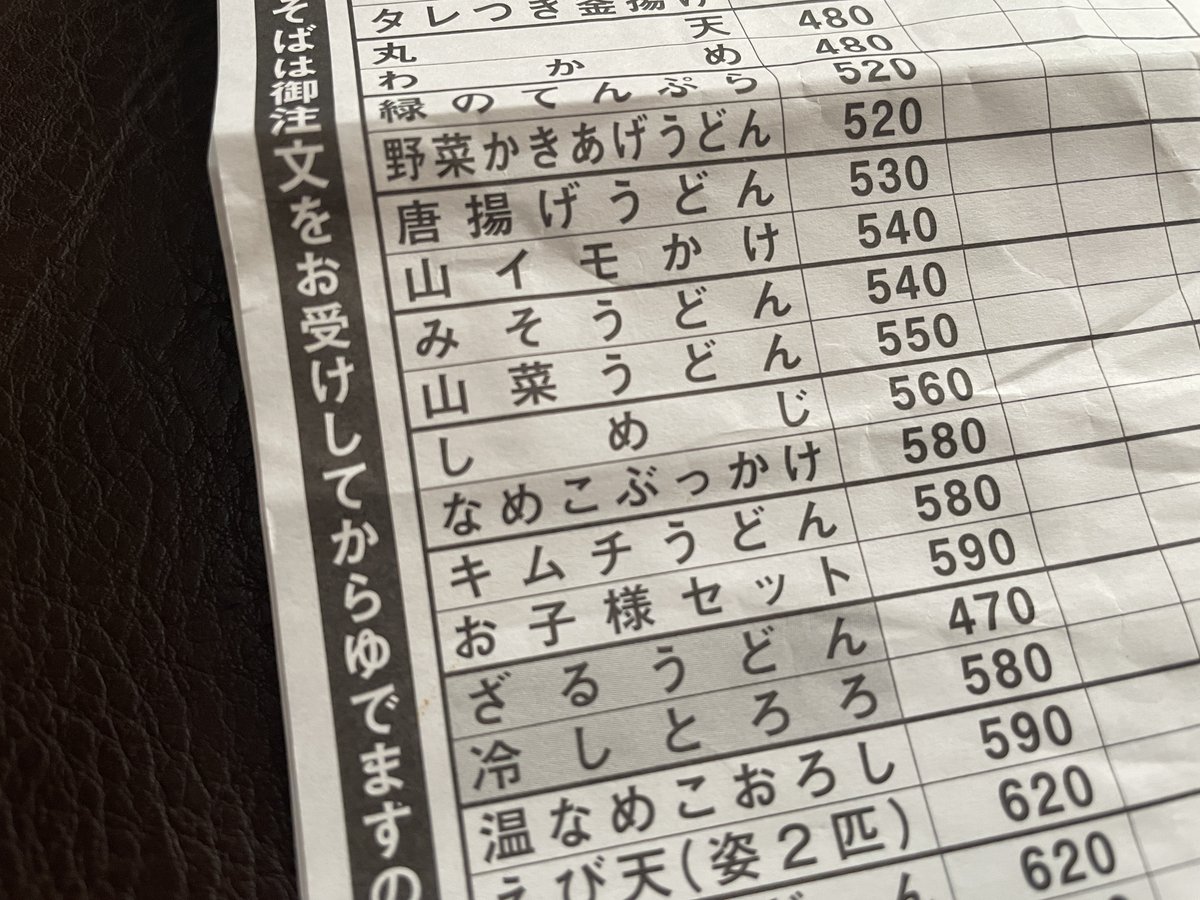 そばは御注文をお受けしてからゆでますの
タレつき釜揚げ
丸天 480
わかめ 480
緑のてんぷら 520
野菜かきあげうどん 520
唐揚げうどん 530
山イモかけ 540
みそうどん 540
山菜うどん 550
しめじ 560
なめこぶっかけ 580
キムチうどん 580
お子様セット 590
ざるうどん 470
冷しとろろ 580
温なめこおろし 590
えび天(姿2匹) 620
どん 620